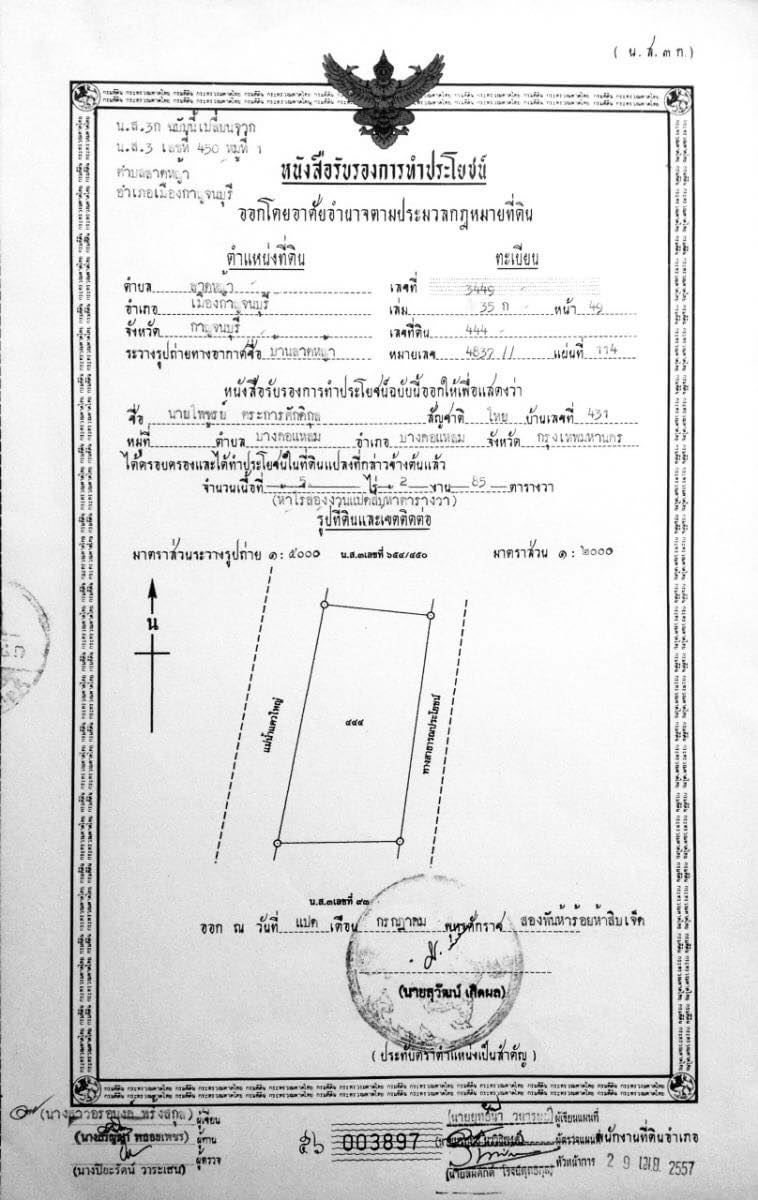 ( น.ส.๓ ก.)
น.ส.3ก ฉบับนี้เปลี่ยนจาก
น.ส.3 เลขที่ 450 หมู่ที่ 1
ตำบลลาดหญ้า
อำเภอเมืองกาญจนบุรี
หนังสือรับรองการทำประโยชน์
ออกโดยอาศัยอำนาจตามประมวลกฎหมายที่ดิน
ตำแหน่งที่ดิน ทะเบียน
ตำบล ลาดหญ้า เลขที่ 3449
อำเภอ เมืองกาญจนบุรี เล่ม 35 ก หน้า 49
จังหวัด กาญจนบุรี เลขที่ดิน 444
ระวางรูปถ่ายทางอากาศชื่อ บ้านลาดหญ้า หมายเลข 4837 II แผ่นที่ 114
หนังสือรับรองการทำประโยชน์ฉบับนี้ออกให้เพื่อแสดงว่า
ชื่อ นายไพฑูรย์ ตระการศักดิกุล สัญชาติ ไทย บ้านเลขที่ 431
หมู่ที่ ตำบล บางคอแหลม อำเภอ บางคอแหลม จังหวัด กรุงเทพมหานคร
ได้ครอบครองและได้ทำประโยชน์ในที่ดินแปลงที่กล่าวข้างต้นแล้ว
จำนวนเนื้อที่ 5 ไร่ 2 งาน 85 ตารางวา
(ห้าไร่สองงานแปดสิบห้าตารางวา)
รูปที่ดินและเขตติดต่อ
มาตราส่วนระวางรูปถ่าย ๑ : ๕๐๐๐ น.ส.๓เลขที่ ๖๕๔/๔๕๐ มาตราส่วน ๑ : ๒๐๐๐
น
แม่น้ำแควใหญ่
๔๔๔
ทางสาธารณประโยชน์
น.ส.๓เลขที่ ๙๓
ออก ณ วันที่ แปด เดือน กรกฎาคม พุทธศักราช สองพันห้าร้อยห้าสิบเจ็ด
(นายสุวัฒน์ เกิดผล)
( ประทับตราตำแหน่งเป็นสำคัญ )
ผู้เขียน
ผู้ทาน
(นางปิยะรัตน์ วาระเสน) ผู้ตรวจ
๕๖ 003897
ผู้เขียนแผนที่
ผู้ตรวจแผนที่
หัวหน้าการ
พนักงานที่ดินอำเภอ
2557